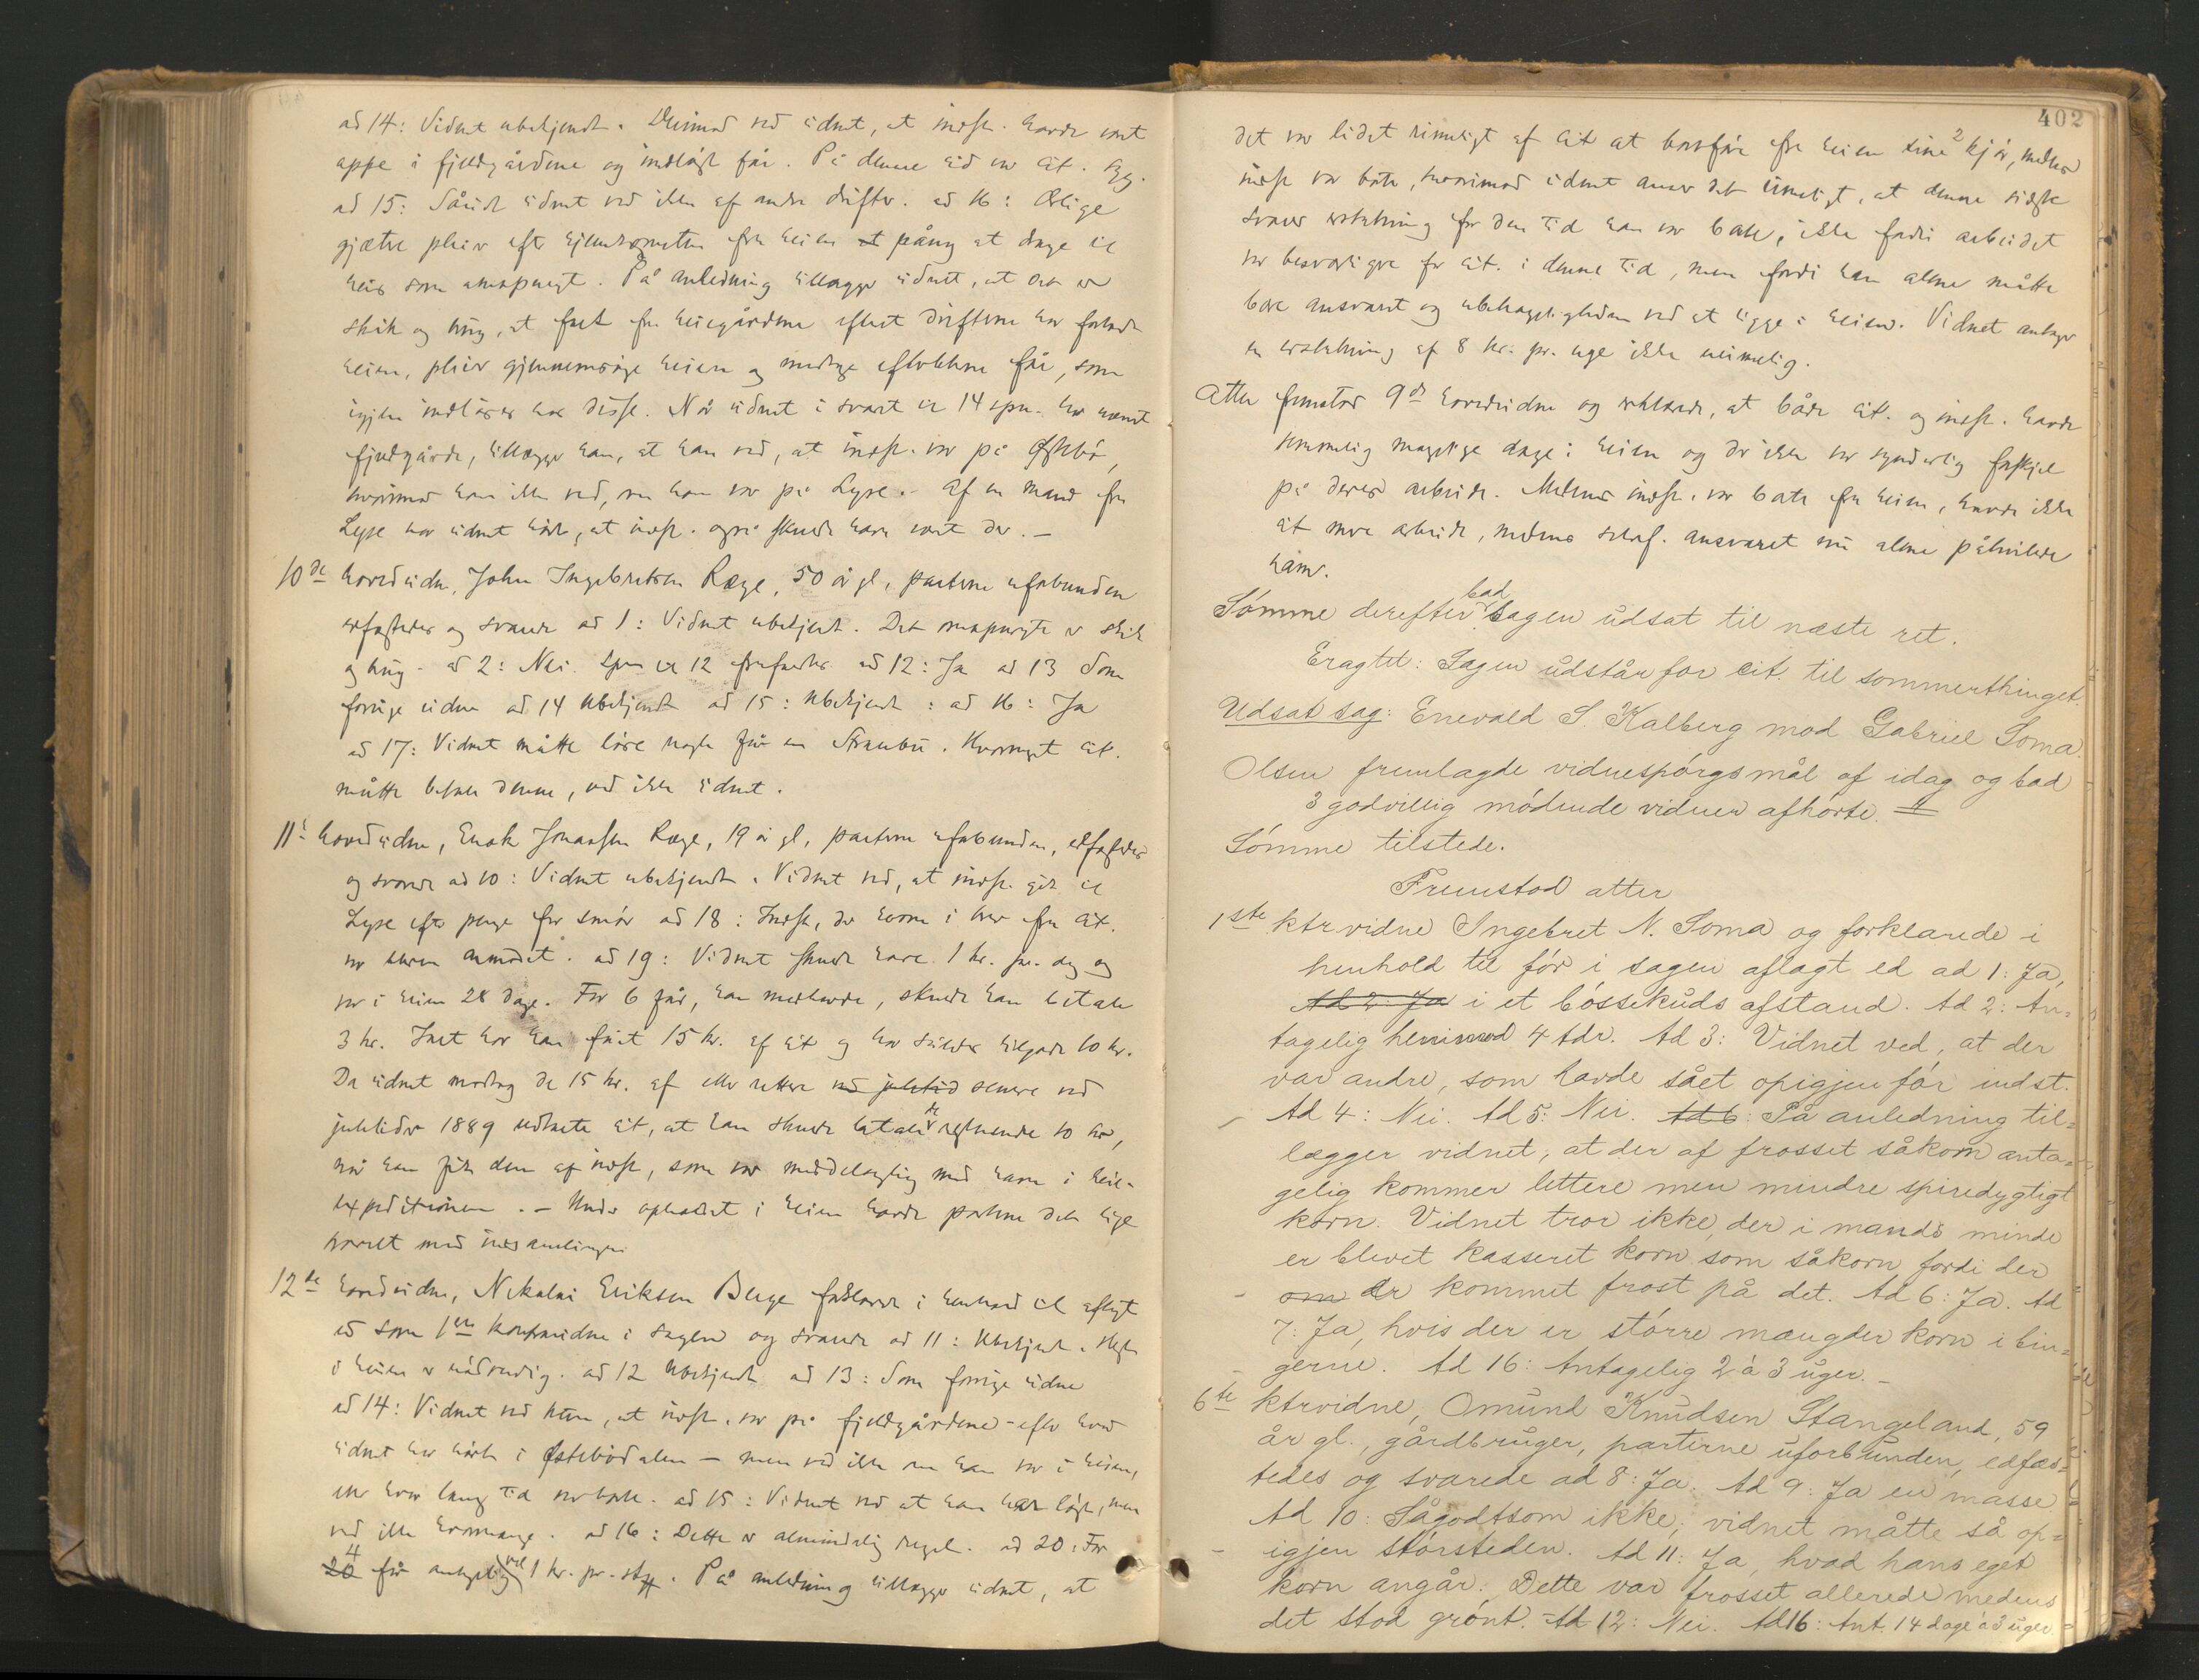 ad 14: Vidnet ubekjendt. Derimod ved vidnet, at indst. havde vært
oppe i fjeldgårdene og indløst får. På denne tid var cit. syg.
ad 15: Såvidt vidnet ved ikke af andre drifter. ad 16: Ærlige
gjætere pleier efter hjemkomsten fra heien at påny at drage til
heis som omspurgt. På anledning tillægger vidnet, at det er
skik og brug, at folk fra heiegårdene efterat drifterne har forladt
heien, pleier gjennemsøge heien og medtage efterblevne får, som
igjen indløses hos disse. Når vidnet i svaret til 14 spm. har nævnt
fjeldgårde, tillægger han, at han ved, at indst. var på Østebø,
hvorimod han ikke ved, om han var på Lyse. Af en mand fra
Lyse har vidnet hørt, at indst. også skulde have vært der. –
10de hovedvidne, John Ingebretsen Ræge, 50 år gl., parterne uforbunden
edfæstedes og svarede ad 1: Vidnet ubekjent. Det omspurgte er skik
og brug. ad 2: Nei. Spm til 12 frafaldes. ad 12: Ja ad 13 Som
forrige vidne ad 14 Ubekjendt ad 15: Ubekjendt: ad 16: Ja
ad 17: Vidnet måtte løse nogle får en Straubu. Hvormeget cit.
måtte betale denne, ved ikke vidnet.
11te hovedvidne, Enok Jonassen Ræge, 19 år gl., parterne uforbunden, edfæstedes
og svarede ad 10: Vidnet ubekjendt. Vidnet ved, at indst. gik til
Lyse efter penge for smør ad 18: Indst., der kom i brev fra cit.
var derom anmodet. ad 19: Vidnet skulde have 1 kr. pr. dag og
var i heien 28 dage. For 6 får, han medhavde, skulde han betale
3 kr. Ialt har han fået 15 kr. af cit og har således tilgode 10 kr.
Da vidnet modtog de 15 kr. af eller rettere ved juletid senere ved
juletider 1889 udtalte cit, at han skulde betale de resterende 10 kr,
når han fik dem af indst., som var meddelagtig med ham i heie-
expeditionen. – Under opholdet i heien havde parterne det lige
travelt med indsamlingen
12te hovedvidne, Nikolai Eriksen Berge forklarede i henhold til aflagt
ed som 1ste kontravidne i sagen og svarede ad 11: Ubekjendt. Hest
i heien er nødvendig. ad 12 Ubekjendt ad 13: Som forrige vidne
ad 14: Vidnet ved kun, at indst. var på fjeldgårdene – efter hvad
vidnet har hørt i Østebødalen – men ved ikke om han var i heien,
eller hvor lang tid var borte. ad 15: Vidnet ved at han har løst, men
ved ikke hvormange. ad 16: Dette er almindelig regel. ad 20: For
20 4 får antagelig ved 1 kr. pr. stk. På anledning tillægger vidnet, at
402
det var lidet rimeligt af cit at bortføre fra heien sine 2 kjør, medens
indst var borte, hvorimod vidnet anser det rimeligt, at denne sidste
svarer erstatning for den tid han var borte, ikke fordi arbeidet
var besværligere for cit. i denne tid, men fordi han alene måtte
bære ansvaret og ubehageligheden ved at ligge i heien. Vidnet antager
en erstatning af 8 kr. pr. uge ikke urimelig.
Atter fremstod 9de hovedvidne og erklærede, at både cit. og indst. havde
temmelig magelige dage i heien og der ikke var synderlig forskjel
på deres arbeide. Medens indst. var borte fra heien, havde ikke
cit mere arbeide, medens selvf. ansvaret nu alene påhvilede
ham.
Sømme derefter bad sagen udsat til næste ret.
Eragtet: Sagen udstår for cit. til sommerthinget.
Udsat sag: Enevald S. Kalberg mod Gabriel Soma.
Olsen fremlagde vidnespørgsmål af idag og bad
3 godvillig mødende vidner afhørte. //
Sømme tilstede.
Fremstod atter
1ste ktrvidne Ingebret N. Soma og forklarede i
henhold til før i sagen aflagt ed ad 1: Ja,
Ad 2: Ja i et bøsseskuds afstand. Ad 2: An-
tagelig henimod 4 tdr. Ad 3: Vidnet ved, at der
var andre, som havde sået opigjen før indst.
Ad 4: Nei. Ad 5: Nei. Ad 6: På anledning til-
lægger vidnet, at der af frosset såkorn anta-
gelig kommer lettere men mindre spiredygtigt
korn. Vidnet tror ikke, der i mands minde
er blevet kasseret korn som såkorn fordi der
om er kommet frost på det. Ad 6: Ja. Ad
7: Ja, hvis der er større mængder korn i bin-
gerne. Ad 16: Antagelig 2 à 3 uger. –
6te ktrvidne, Omund Knudsen Stangeland, 59
år gl., gårdbruger, parterne uforbunden, edfæs-
tedes og svarede ad 8: Ja. Ad 9: Ja en masse
Ad 10: Sågodtsom ikke; vidnet måtte så op-
igjen størsteden. Ad 11: Ja, hvad hans eget
korn angår. Dette var frosset allerede medens
det stod grønt. – Ad 12: Nei. Ad 16: Ant. 14 dage à 3 uger